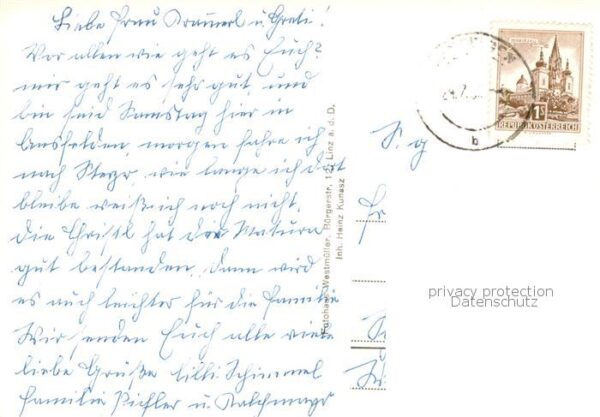 Liebe Frau Krammerl u. Greti!
Vor allen wie geht es Euch?
mir geht es sehr gut, und
bin seid Samstag hier in
Ansfelden, morgen fahre ich
nach Steyr, wie lange ich dort
bleibe weiß ich noch nicht,
die Christl hat die Matura
gut bestanden, dann wird
es auch leichter für die Familie
Wir senden Euch alle viele
liebe Grüße Lilli Schimmel
Familie Pichler u.
Fotohaus Westmüller, Bürgerstr. 12, Linz a. d. D.
Inh. Heinz Kunasz
S. g
Fr
b
1S
REPUBLIK ÖSTERREICH
privacy protection
Datenschutz